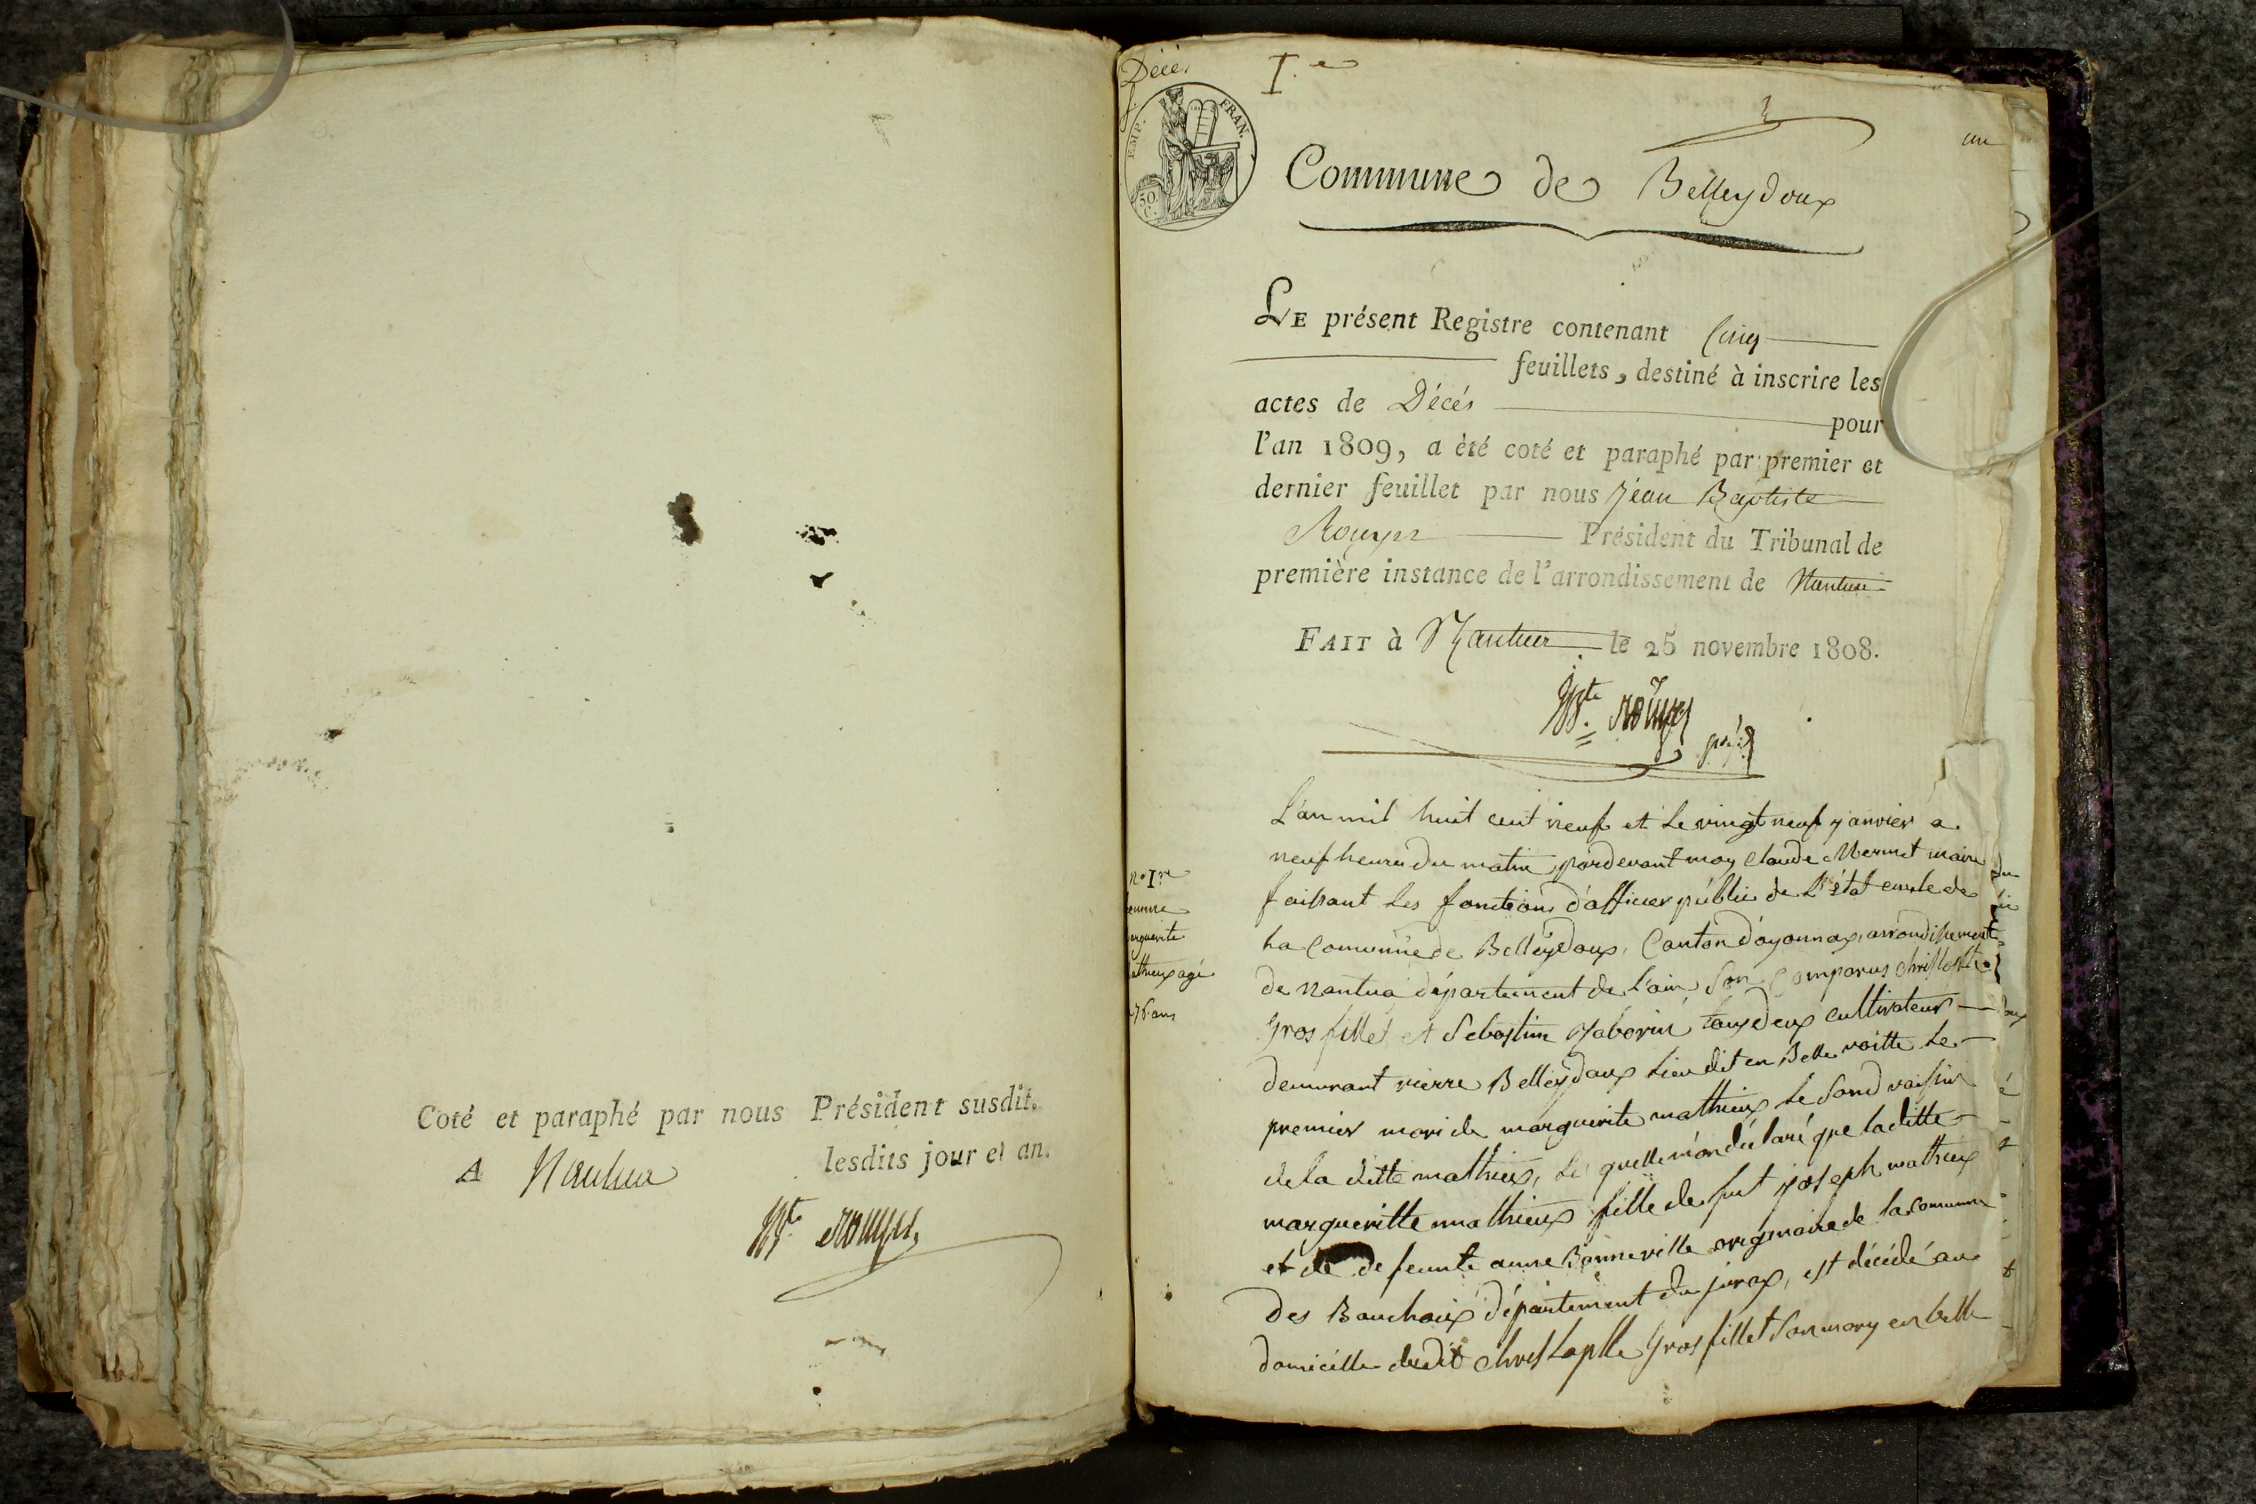 Coté et paraphé par nous Président susdit,
A Nantua lesdits jour et an.
Bte rouyer
Décès
I.e
EMP. FRAN.
50 C.
un
Commune de Belleydoux
LE présent Registre contenant Cinq
feuillets, destiné à inscrire les
actes de Décés pour
l'an 1809, a èté coté et paraphé par premier et
dernier feuillet par nous Jéan Baptiste
Rouyer Président du Tribunal de
première instance de l'arrondissement de Nantua
FAIT à Nantua le 25 novembre 1808.
Bte rouyer
L'an mil huit cent neuf et le vingt neuf janvier a
neuf heures du matin, pardevant moy Claude Mermet maire
faissant les fonctions d'afficier públic de L'état civile de
la Commune de Belleydoux, Canton d'oyonnax, arrondissement
de nantua département de L'ain, Son Comparus christophle
Gros fillet et Sebastien Maborin tous deux cultivateur
demurant rierre Belleydoux Lieu dit en Belle voitte Le
premier mari de marguerite mathieux Le Sond voissin
de la ditte mathieux, Les quelle m'on déclaré que laditte
margueritte mathieux fille de fut joseph mathieux
et de defeunte anne Bonneville originaire de la commune
des Bouchoix département du jurax, est décédé au
domicille dudit christophle Gros fillet Son mary en belle
no Ire
marguerite
mathieux agé
76 ans